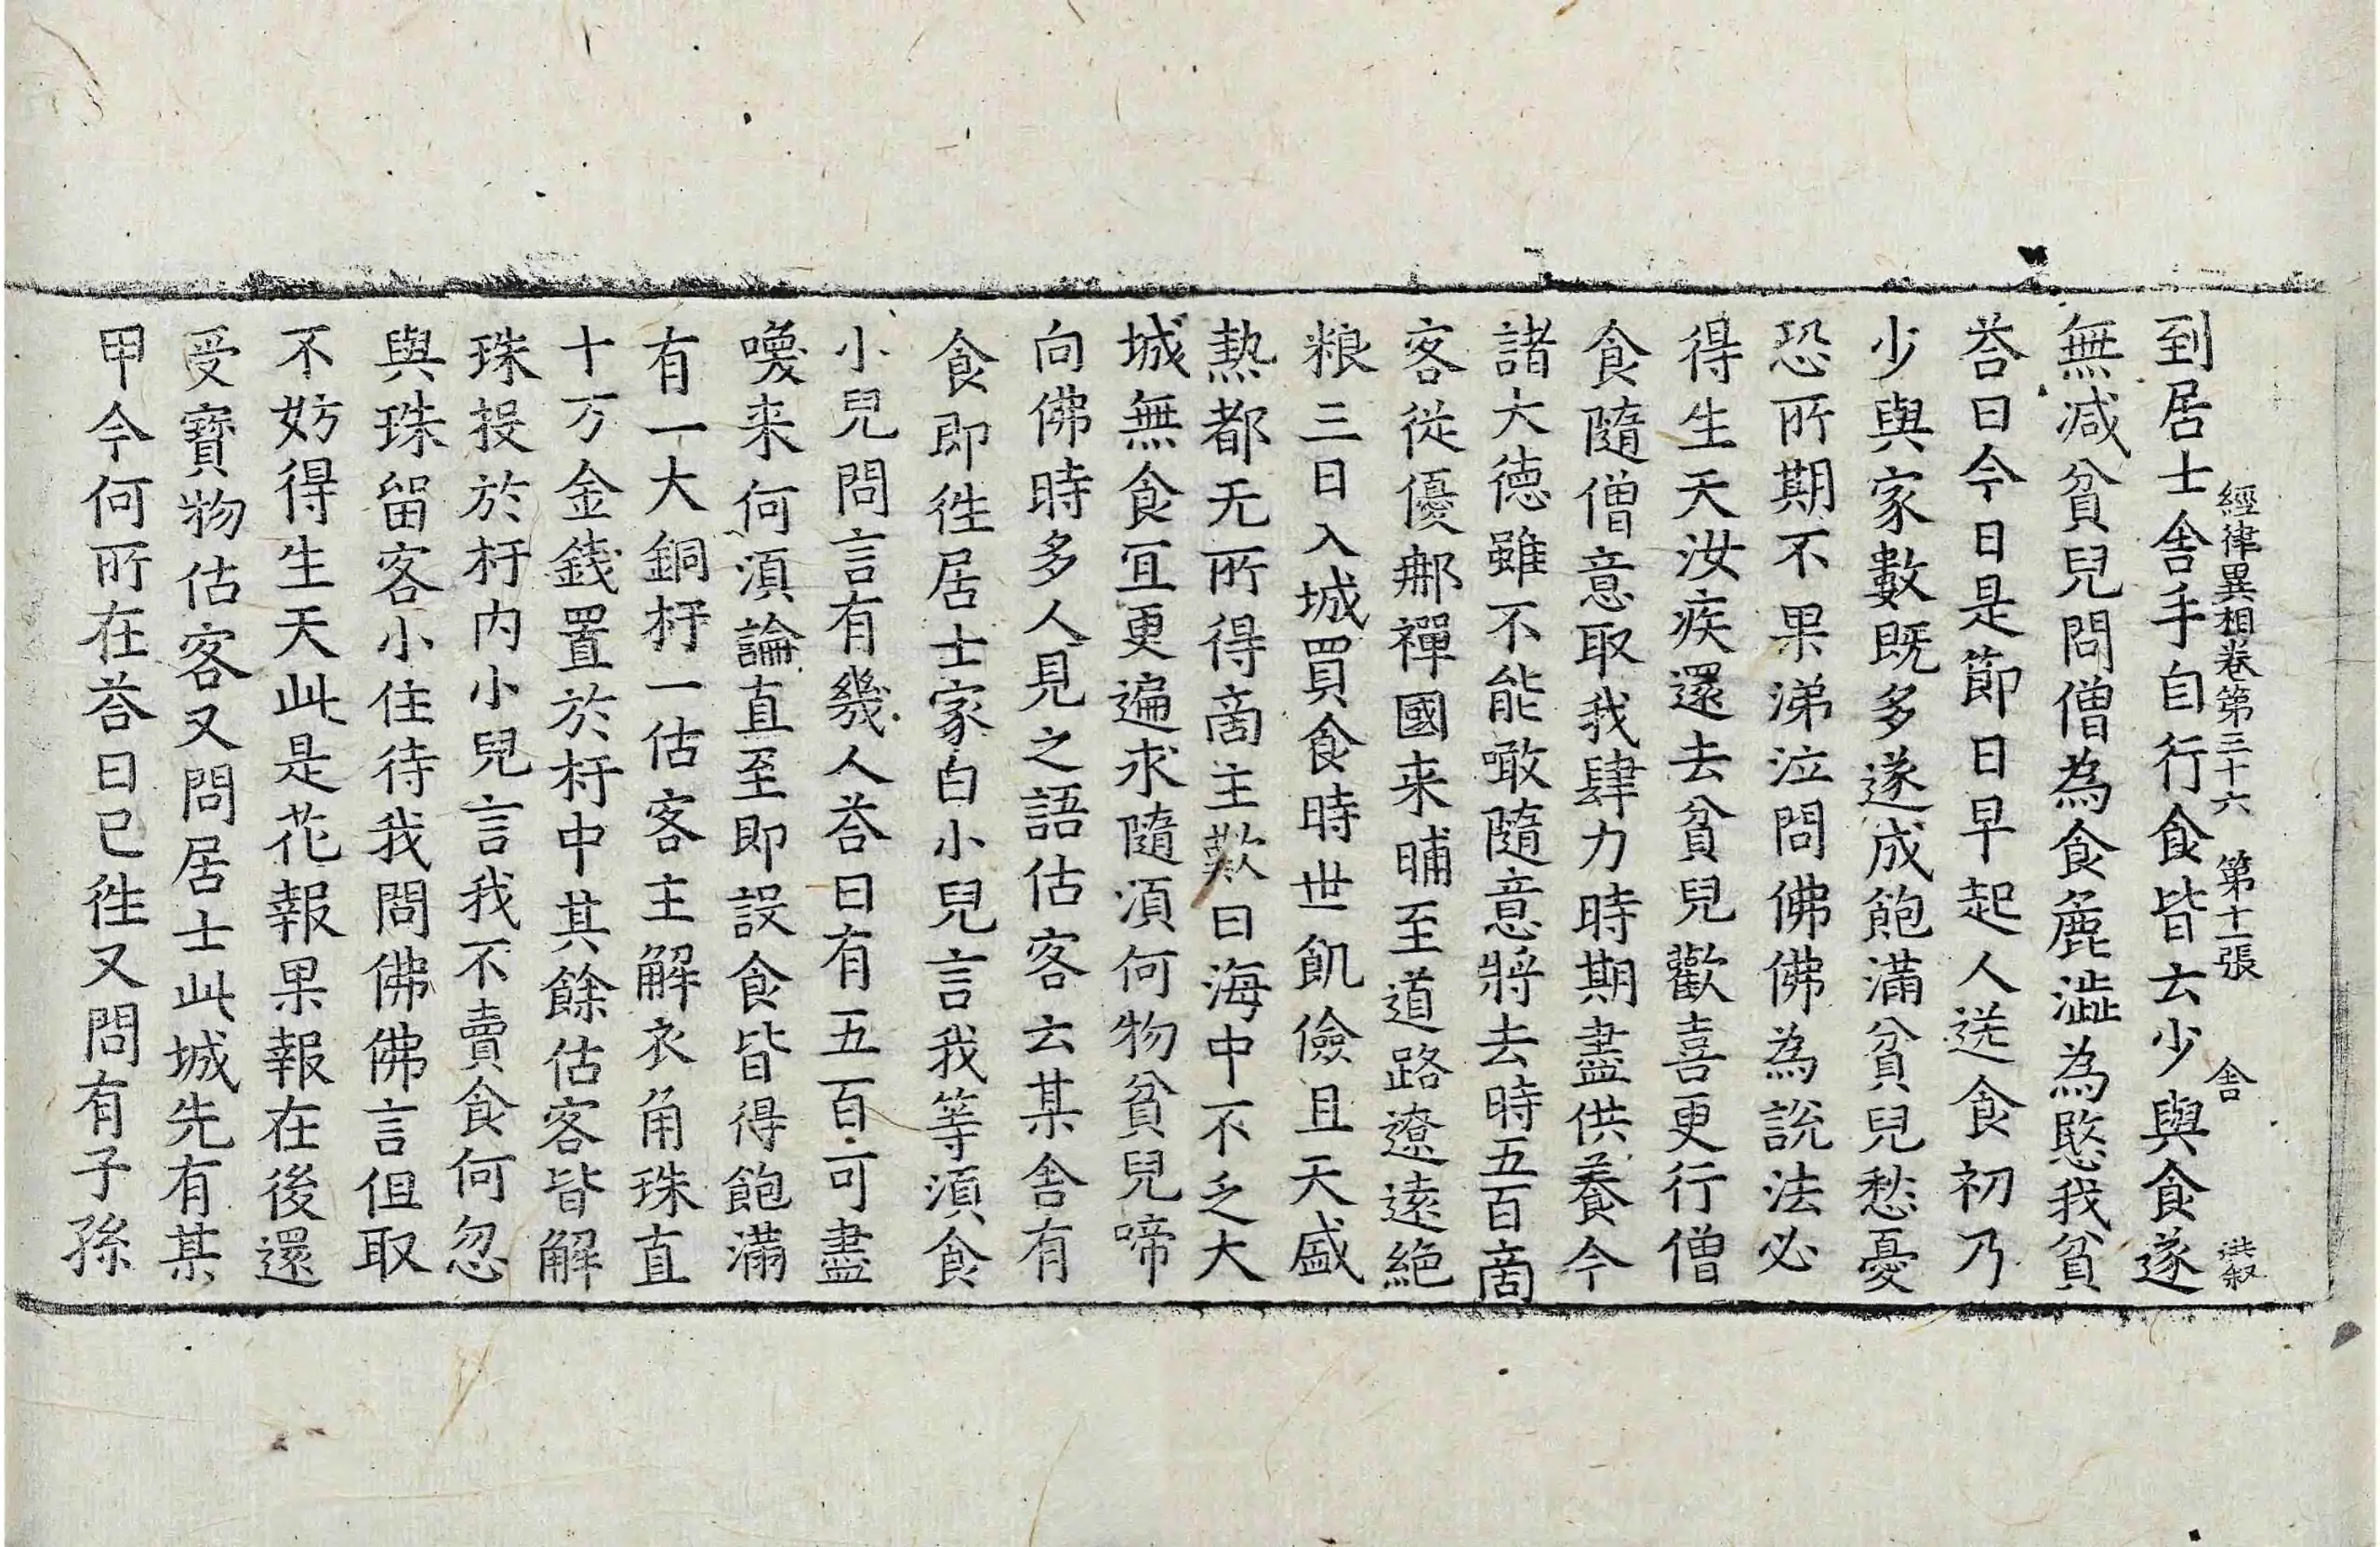 經律異相卷第三十六 第十一張 舍 洪叙
到居士舍手自行食皆云少與食遂
無减貧兒問僧為食麁澁為愍我貧
荅曰今日是節日早起人送食初乃
少與家數既多遂成飽滿貧兒愁憂
恐所期不果涕泣問佛佛為說法必
得生天汝疾還去貧兒歡喜更行僧
食隨僧意取我肆力時期盡供養今
諸大德雖不能噉隨意將去時五百啇
客從優耶禪國来晡至道路遼遠絶
粮三日入城買食時世飢儉且天盛
熱都无所得啇主歎曰海中不乏大
城無食冝更遍求隨湏何物貧兒啼
向佛時多人見之語估客云某舍有
食即徃居士家白小兒言我等湏食
小兒問言有幾人荅曰有五百可盡
喚来何湏論直至即設食皆得飽滿
有一大銅杅一估客主解衣角珠直
十万金錢置於杅中其餘估客皆解
珠投於杅内小兒言我不賣食何忽
與珠留客小住待我問佛佛言但取
不妨得生天此是花報果報在後還
受寶物估客又問居士此城先有某
甲今何所在荅曰已徃又問有子孫